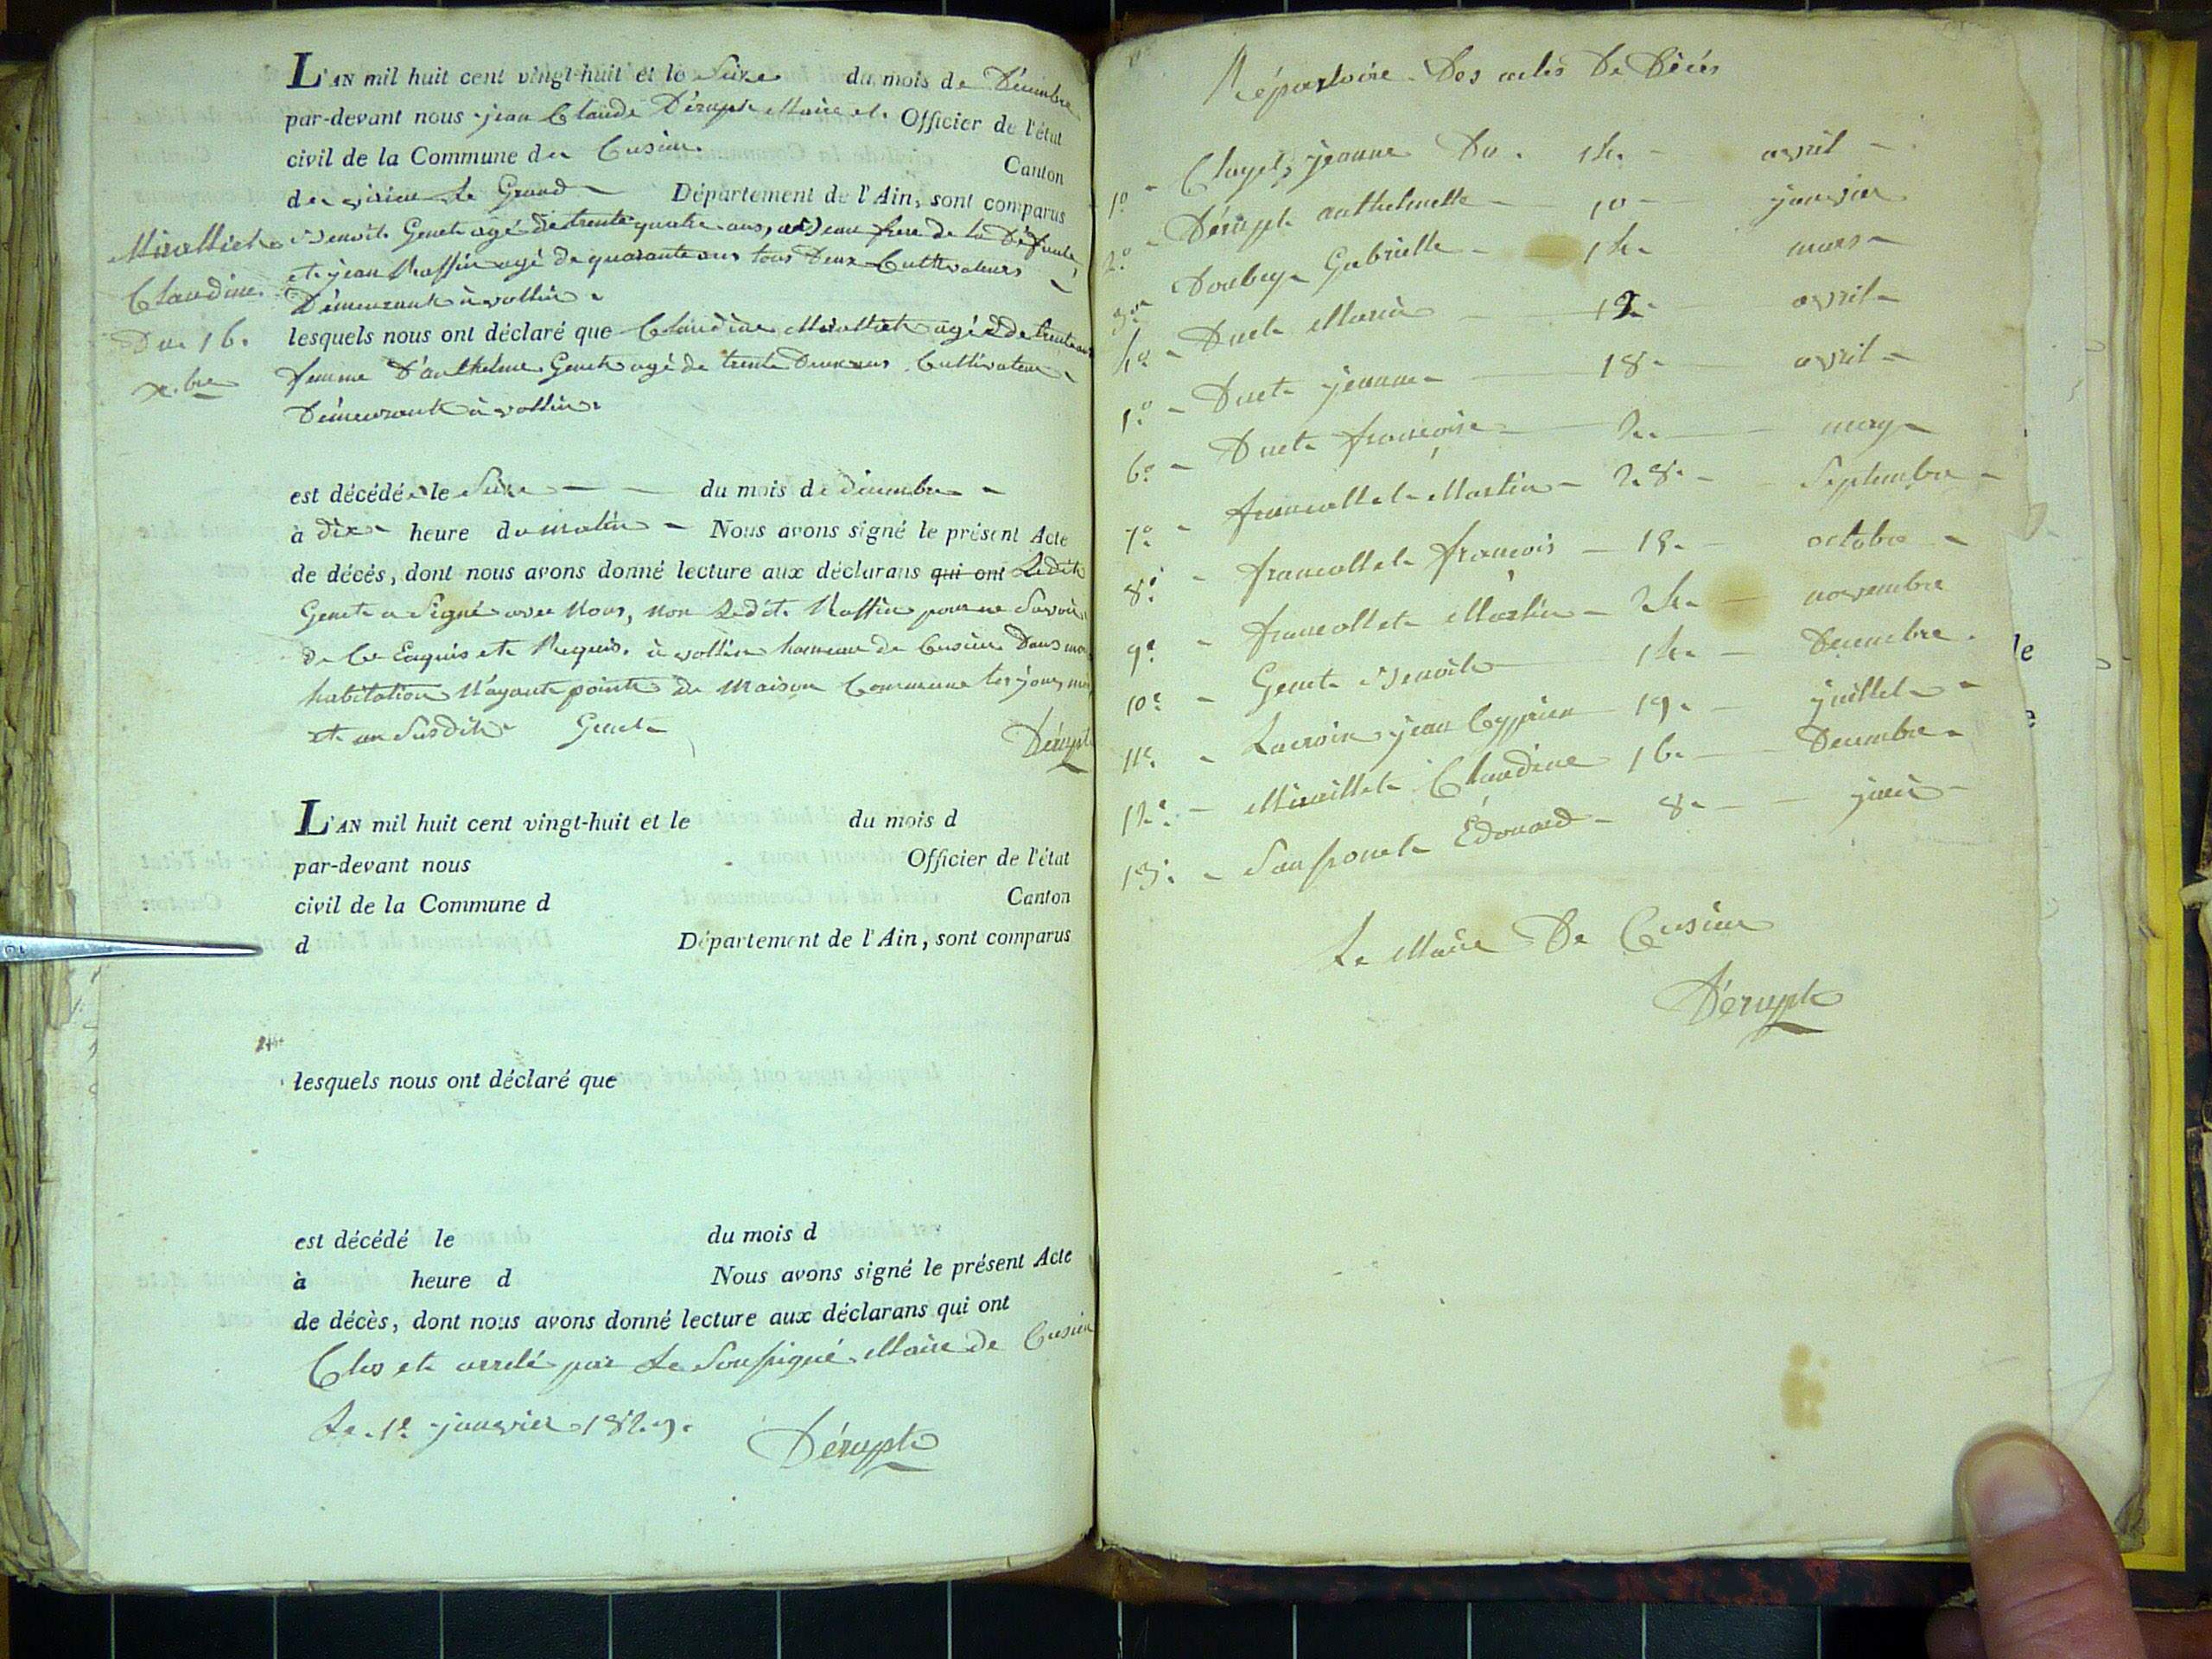 L'AN mil huit cent vingt-huit et le Seize du mois de Décembre
par-devant nous jean Claude Dérupt Maire et Officier de l'état
civil de la Commune de Cusieu Canton
de virieu Le Grand Département de l'Ain, sont comparus
Benoit Genet agé de trente quatre ans, beau frere de la Défunte
et jean Roffin agé de quarante ans tous Deux Cultivateurs
Démeurant à vollin
lesquels nous ont déclaré que Claudine Miralliet agéé de trente ans
femme D'anthelme Genet agé de trente Deux ans Cultivateur
Démeurant à vollin
Miralliet
Claudine
Du 16.
x.bre
est décédée le Seize du mois de décembre
à dix heure du matin Nous avons signé le présent Acte
de décés, dont nous avons donné lecture aux déclarans qui ont Ledit
Genet a Signé avec Nous, non Ledit Roffin pour ne Savoir
de Ce Enquis et Requis. à vollin hameau de Cusieu Dans mon
habitation N'ayant point de Maison Commune les jour, mois
et an Susdit Genet Dérupt
L'AN mil huit cent vingt-huit et le du mois d
par-devant nous Officier de l'état
civil de la Commune d Canton
d Département de l'Ain, sont comparus
lesquels nous ont déclaré que
est décédé le du mois d
à heure d Nous avons signé le présent Acte
de décès, dont nous avons donné lecture aux déclarans qui ont
Clos et arrelé par Le Soussigné Maire de Cusieu
Le 1er janvier 1829.
Dérupt
Répertoire Des actes De Décés
1º Clayet, jeanne Du 14 avril
2º Dérupt anthelmette 10 janvier
3º Doubey Gabrielle 14 mars
4º Duet Marie 12 avril
5º Duet jeanne 18 avril
6º Duet françoise 2 may
7º francollet Martin 28 Septembre
8º francollet françois 18 octobre
9º francollet Martin 24 novembre
10º Genet Benoit 14 Decembre
11º Lacroix jean Cyprien 19 juillet
12º Miraillet Claudine 16 Decembre
13º Sansponet Edouard 8 juin
Le Maire De Cusieu
Dérupt
le
e